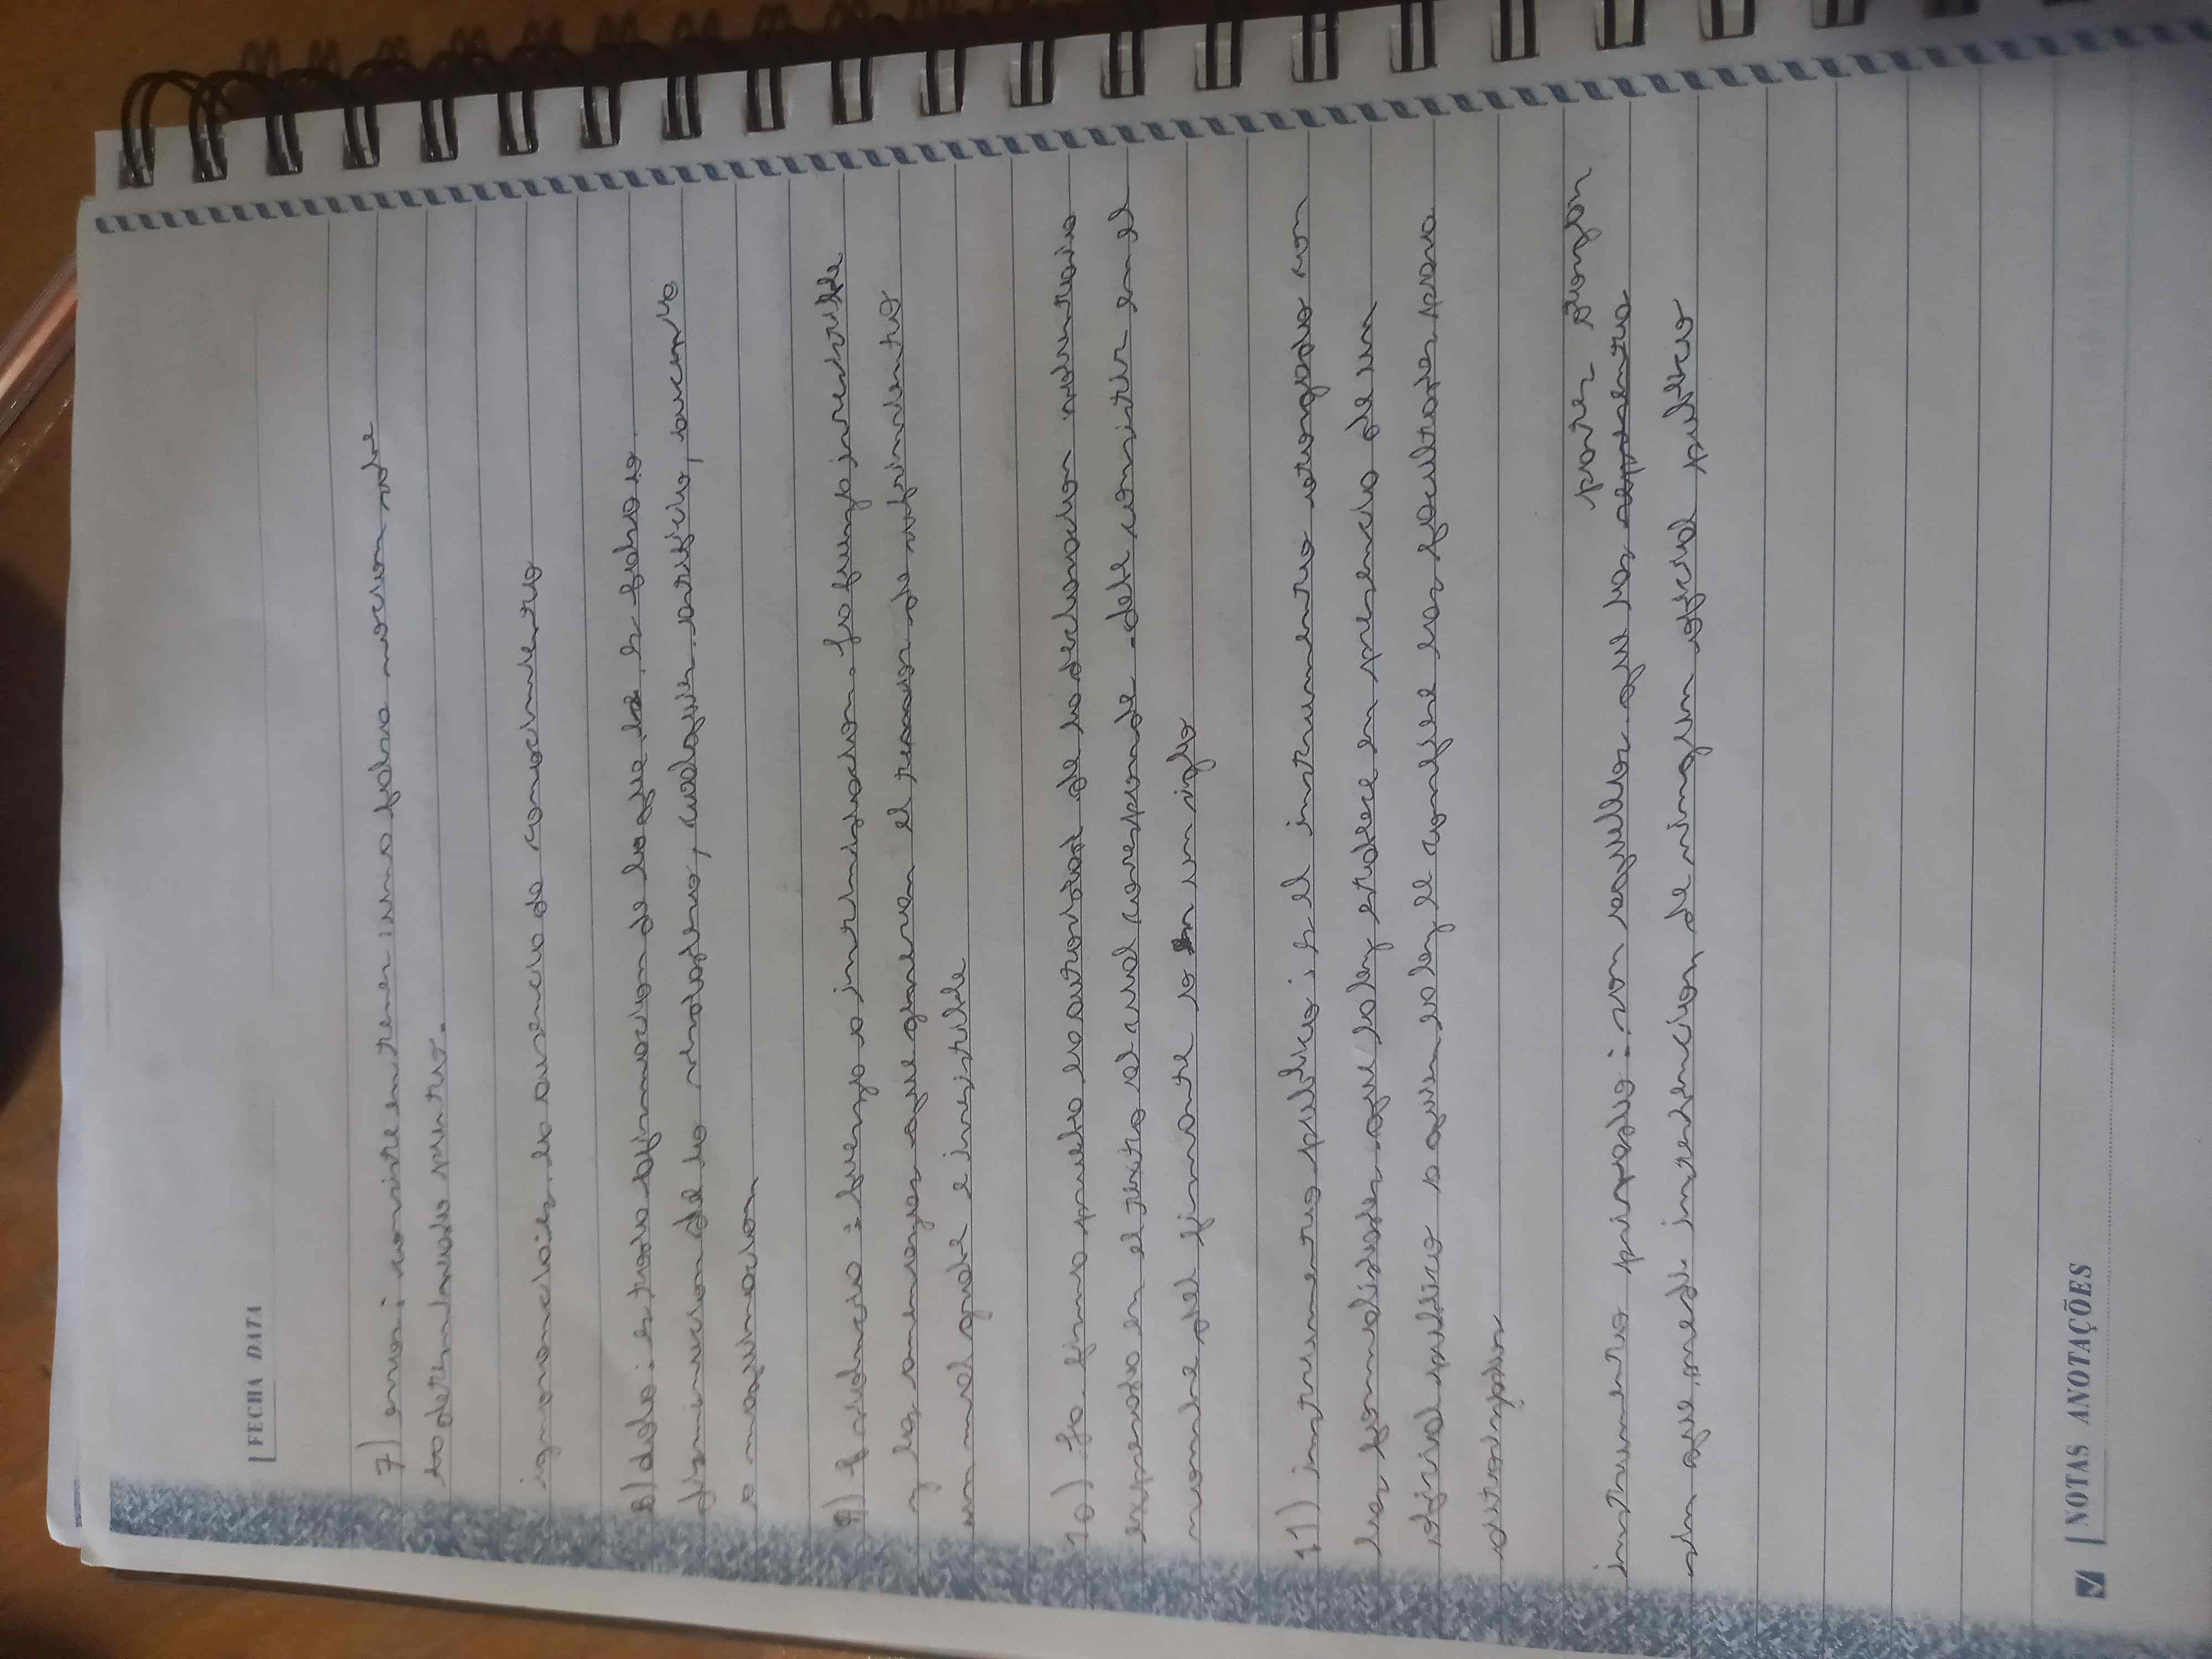 FECHA DATA
7) error: consiste en tener una falsa nocion sobre
to determinado punto.
ignorancia: es la ausencia de conocimiento
8) dolo: es toda afirmacion de lo que es falso o
disimulacion de lo verdadero, cualquier artificio, astucia
o maquinacion
9) violencia: fuerza o intimidacion. La fuerza irresistible
y las amenazas que generan el temor de sufrimiento
un mal grabe e inresistible
10) La firma prueba la autoria de la declaracion voluntaria
expresada en el texto al cual corresponde. debe consistir en el
nombre del firmante o en un signo
11) instrumento publico: es el instrumento otorgado con
las formalidades que la ley establece en presencia de un
oficial publico o quien la ley le confiere las facultades para
autorizarlos
partes otorgan
instrumento pribado: son aquellos que las
sin que medie intervencion de ningun oficial publico
NOTAS ANOTAÇÕES